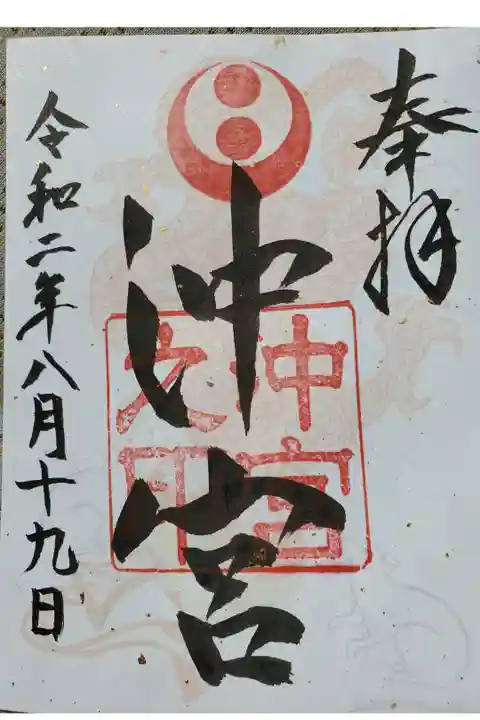 奉拝
沖宮
沖宮
之印
令和二年八月十九日